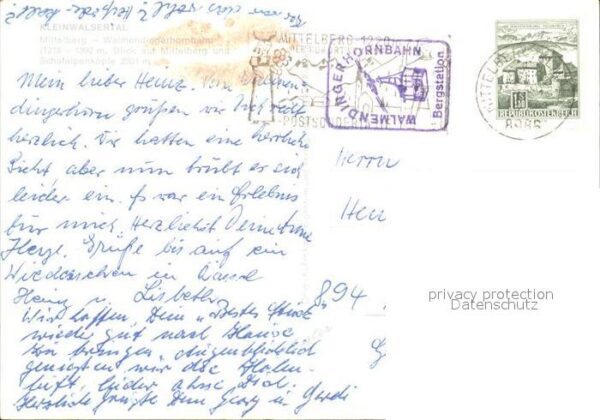 KLEINWALSERTAL
Mittelberg - Walmendingerhornbahn
(1218 - 1992 m, Blick auf Mittelberg und
Schafalpenköpfe 2301 m
MITTELBERG 1220
WALMENDINGERHORNBAHN
Bergstation
REPUBLIK ÖSTERREICH
Mein lieber Heinz. Vom Walmen
dingerhorn grüßen wir Dich recht
herzlich. Wir hatten eine herrliche
Sicht aber nun trübt es sich
leider ein. Es war ein Erlebnis
für mich. Herzlichst Deine
Grüße bis auf ein
Wiedersehen in
Heinz u. Lisbeth
Wir hoffen, Dein "bestes Stück"
wieder gut nach Hause
zu bringen. Augenblicklich
genießen wir die Höhen-
luft, leider ohne Dich.
Herzlich grüßt Dein Georg u. Gerdi
Herrn
894
privacy protection
Datenschutz